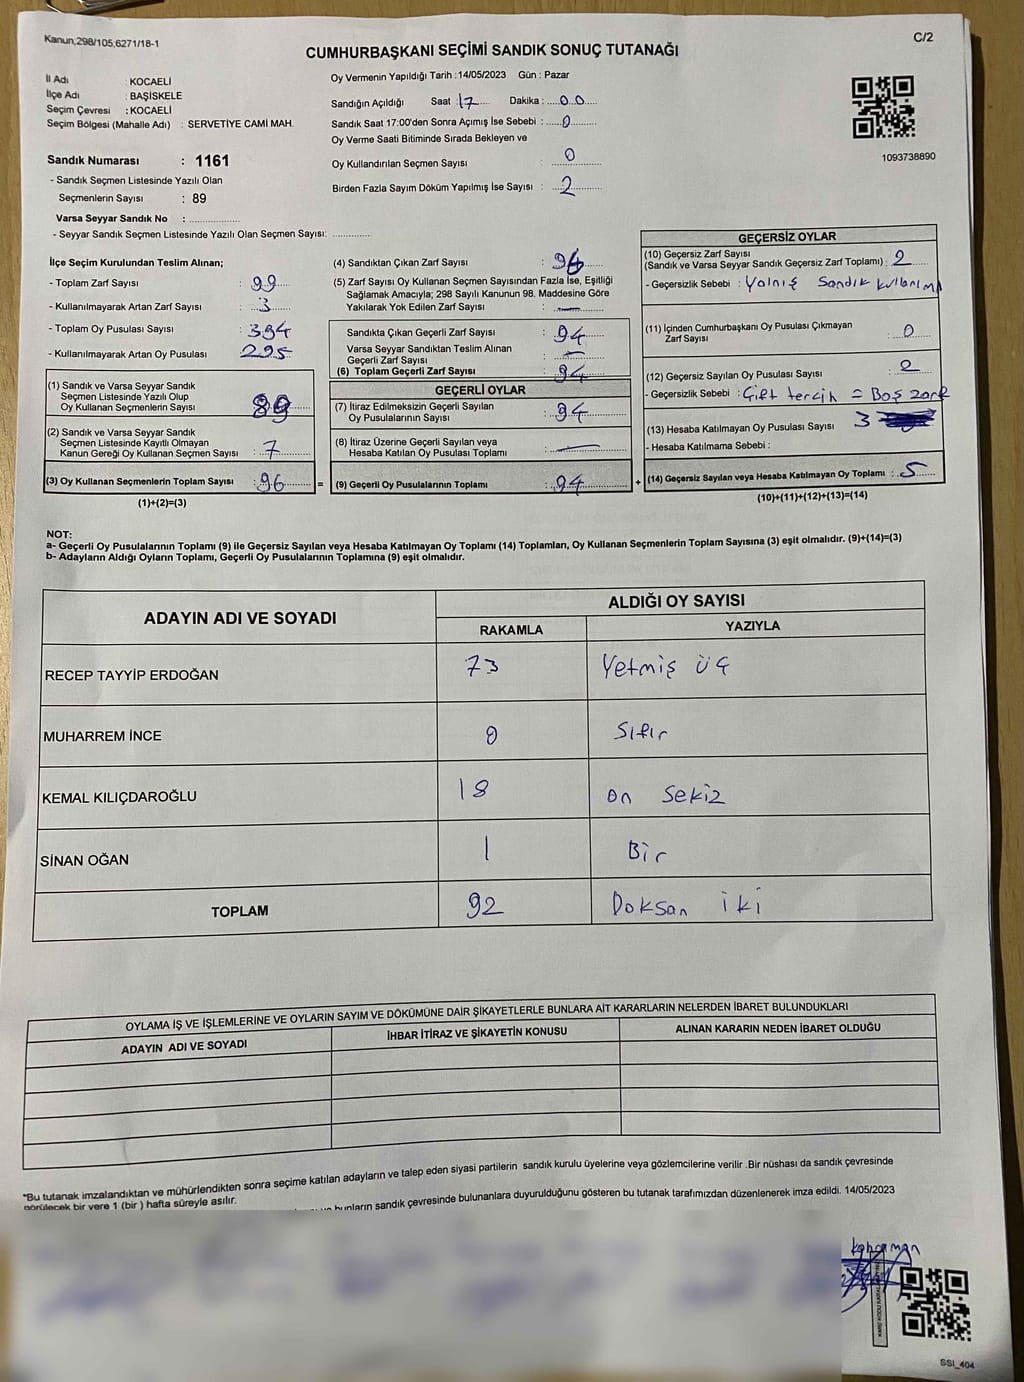 Kanun;298/105,6271/18-1
C/2
CUMHURBAŞKANI SEÇİMİ SANDIK SONUÇ TUTANAĞI
İl Adı : KOCAELİ
İlçe Adı : BAŞİSKELE
Seçim Çevresi : KOCAELİ
Seçim Bölgesi (Mahalle Adı) : SERVETİYE CAMİ MAH.
Sandık Numarası : 1161
- Sandık Seçmen Listesinde Yazılı Olan
Seçmenlerin Sayısı : 89
Varsa Seyyar Sandık No : ...................
- Seyyar Sandık Seçmen Listesinde Yazılı Olan Seçmen Sayısı: .............
Oy Vermenin Yapıldığı Tarih :14/05/2023 Gün : Pazar
Sandığın Açıldığı Saat : 17 Dakika : 00
Sandık Saat 17:00'den Sonra Açımış İse Sebebi : 0
Oy Verme Saati Bitiminde Sırada Bekleyen ve
Oy Kullandırılan Seçmen Sayısı : 0
Birden Fazla Sayım Döküm Yapılmış İse Sayısı : 2
1093738890
İlçe Seçim Kurulundan Teslim Alınan;
- Toplam Zarf Sayısı : 99
- Kullanılmayarak Artan Zarf Sayısı : 3
- Toplam Oy Pusulası Sayısı : 394
- Kullanılmayarak Artan Oy Pusulası : 295
(1) Sandık ve Varsa Seyyar Sandık
Seçmen Listesinde Yazılı Olup
Oy Kullanan Seçmenlerin Sayısı : 89
(2) Sandık ve Varsa Seyyar Sandık
Seçmen Listesinde Kayıtlı Olmayan
Kanun Gereği Oy Kullanan Seçmen Sayısı : 7
(3) Oy Kullanan Seçmenlerin Toplam Sayısı : 96 =
(1)+(2)=(3)
(4) Sandıktan Çıkan Zarf Sayısı : 96
(5) Zarf Sayısı Oy Kullanan Seçmen Sayısından Fazla İse, Eşitliği
Sağlamak Amacıyla; 298 Sayılı Kanunun 98. Maddesine Göre
Yakılarak Yok Edilen Zarf Sayısı : —
Sandıkta Çıkan Geçerli Zarf Sayısı : 94
Varsa Seyyar Sandıktan Teslim Alınan
Geçerli Zarf Sayısı : —
(6) Toplam Geçerli Zarf Sayısı : 94
GEÇERLİ OYLAR
(7) İtiraz Edilmeksizin Geçerli Sayılan
Oy Pusulalarının Sayısı : 94
(8) İtiraz Üzerine Geçerli Sayılan veya
Hesaba Katılan Oy Pusulası Toplamı : —
(9) Geçerli Oy Pusulalarının Toplamı : 94 +
GEÇERSİZ OYLAR
(10) Geçersiz Zarf Sayısı
(Sandık ve Varsa Seyyar Sandık Geçersiz Zarf Toplamı) : 2
- Geçersizlik Sebebi : Yalnış Sandık kullanımı
(11) İçinden Cumhurbaşkanı Oy Pusulası Çıkmayan
Zarf Sayısı : 0
(12) Geçersiz Sayılan Oy Pusulası Sayısı : 2
- Geçersizlik Sebebi : Çift tercih = Boş zarf
(13) Hesaba Katılmayan Oy Pusulası Sayısı 3
- Hesaba Katılmama Sebebi :
(14) Geçersiz Sayılan veya Hesaba Katılmayan Oy Toplamı : 5
(10)+(11)+(12)+(13)=(14)
NOT:
a- Geçerli Oy Pusulalarının Toplamı (9) ile Geçersiz Sayılan veya Hesaba Katılmayan Oy Toplamı (14) Toplamları, Oy Kullanan Seçmenlerin Toplam Sayısına (3) eşit olmalıdır. (9)+(14)=(3)
b- Adayların Aldığı Oyların Toplamı, Geçerli Oy Pusulalarının Toplamına (9) eşit olmalıdır.
ADAYIN ADI VE SOYADI
ALDIĞI OY SAYISI
RAKAMLA YAZIYLA
RECEP TAYYİP ERDOĞAN 73 Yetmiş üç
MUHARREM İNCE 0 Sıfır
KEMAL KILIÇDAROĞLU 18 On Sekiz
SİNAN OĞAN 1 Bir
TOPLAM 92 Doksan iki
OYLAMA İŞ VE İŞLEMLERİNE VE OYLARIN SAYIM VE DÖKÜMÜNE DAİR ŞİKAYETLERLE BUNLARA AİT KARARLARIN NELERDEN İBARET BULUNDUKLARI
ADAYIN ADI VE SOYADI İHBAR İTİRAZ VE ŞİKAYETİN KONUSU ALINAN KARARIN NEDEN İBARET OLDUĞU
*Bu tutanak imzalandıktan ve mühürlendikten sonra seçime katılan adayların ve talep eden siyasi partilerin sandık kurulu üyelerine veya gözlemcilerine verilir .Bir nüshası da sandık çevresinde
görülecek bir yere 1 (bir ) hafta süreyle asılır.
bunların sandık çevresinde bulunanlara duyurulduğunu gösteren bu tutanak tarafımızdan düzenlenerek imza edildi. 14/05/2023
Kahraman
SSİ_404